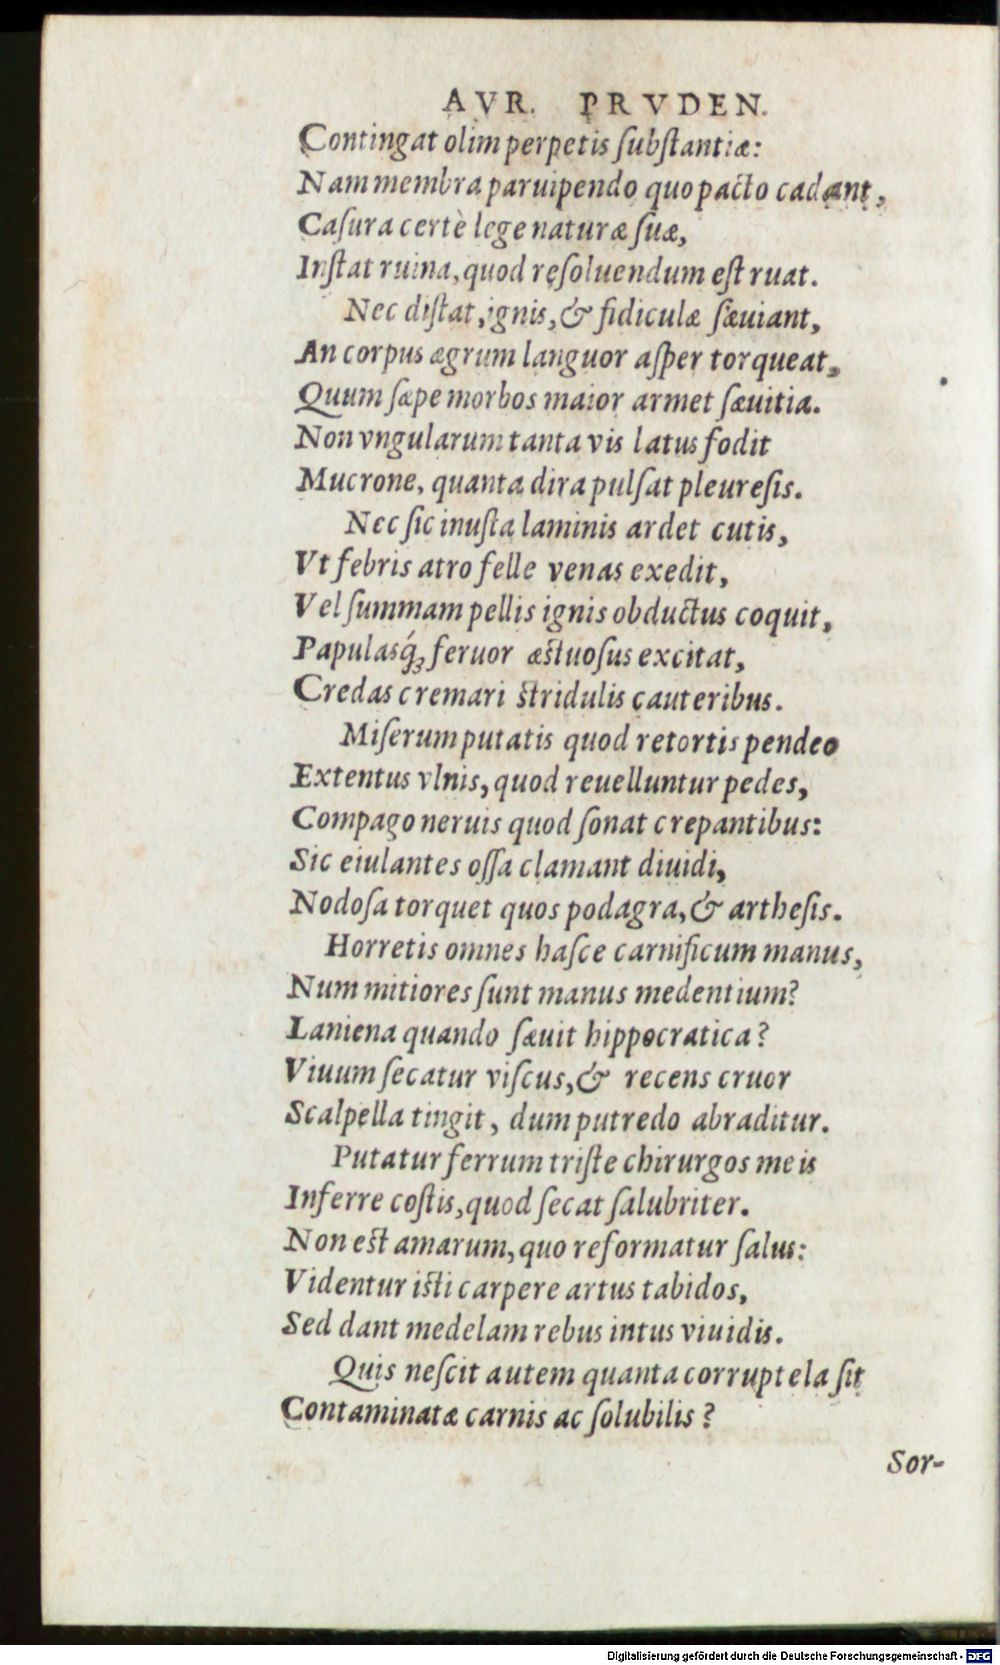 AVR. PRVDEN.
Contingat olim perpetis ſubſtantiæ:
Nam membra paruipendo quo pacto cadant,
Caſura certè lege naturæ ſuæ,
Inſtat ruina, quod reſoluendum eſt ruat.
Nec diſtat, ignis, & fidiculæ ſæuiant,
An corpus ægrum languor aſper torqueat,
Quum ſæpe morbos maior armet ſæuitia.
Non vngularum tanta vis latus fodit
Mucrone, quanta dira pulſat pleureſis.
Nec ſic inuſta laminis ardet cutis,
Vt febris atro felle venas exedit,
Vel ſummam pellis ignis obductus coquit,
Papulasq́ꝫ feruor æstuoſus excitat,
Credas cremari stridulis cauteribus.
Miſerum putatis quod retortis pendeo
Extentus vlnis, quod reuelluntur pedes,
Compago neruis quod ſonat crepantibus:
Sic eiulantes oſſa clamant diuidi,
Nodoſa torquet quos podagra, & artheſis.
Horretis omnes haſce carnificum manus,
Num mitiores ſunt manus medentium?
Laniena quando ſæuit hippocratica?
Viuum ſecatur viſcus, & recens cruor
Scalpella tingit, dum putredo abraditur.
Putatur ferrum triſte chirurgos meis
Inferre coſtis, quod ſecat ſalubriter.
Non est amarum, quo reformatur ſalus:
Videntur isti carpere artus tabidos,
Sed dant medelam rebus intus viuidis.
Quis neſcit autem quanta corruptela ſit
Contaminatæ carnis ac ſolubilis?
Sor-
Digitalisierung gefördert durch die Deutsche Forschungsgemeinschaft - DFG